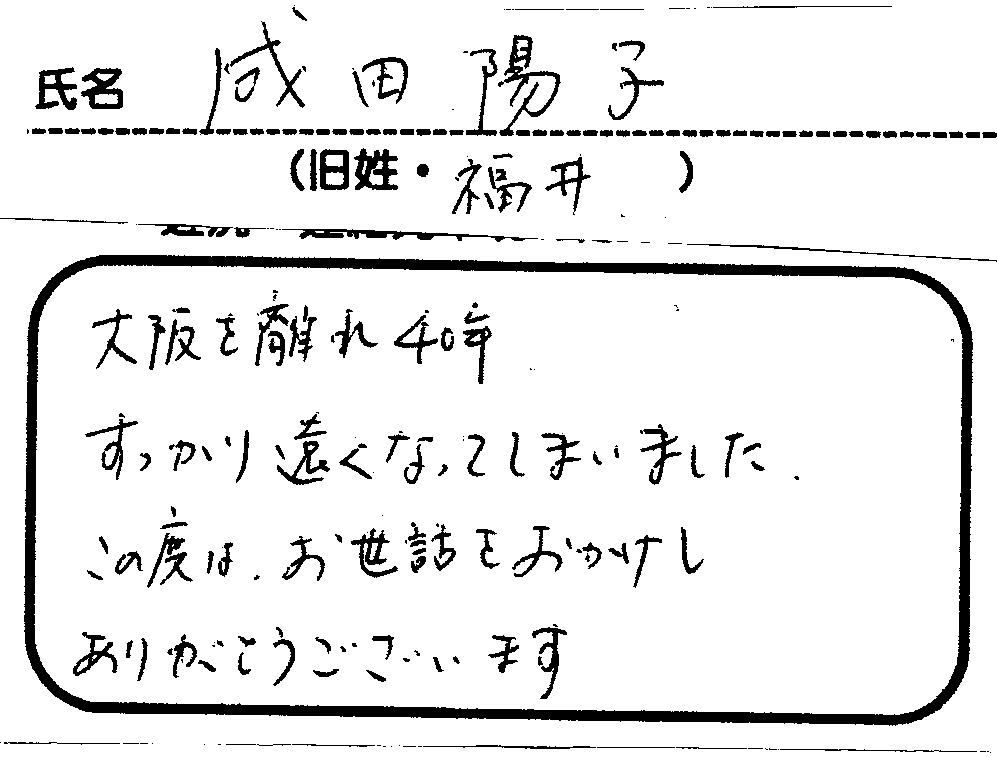 氏名 成田陽子
(旧姓・福井 )
大阪を離れ40年
すっかり遠くなってしまいました.
この度は、お世話をおかけし
ありがとうございます